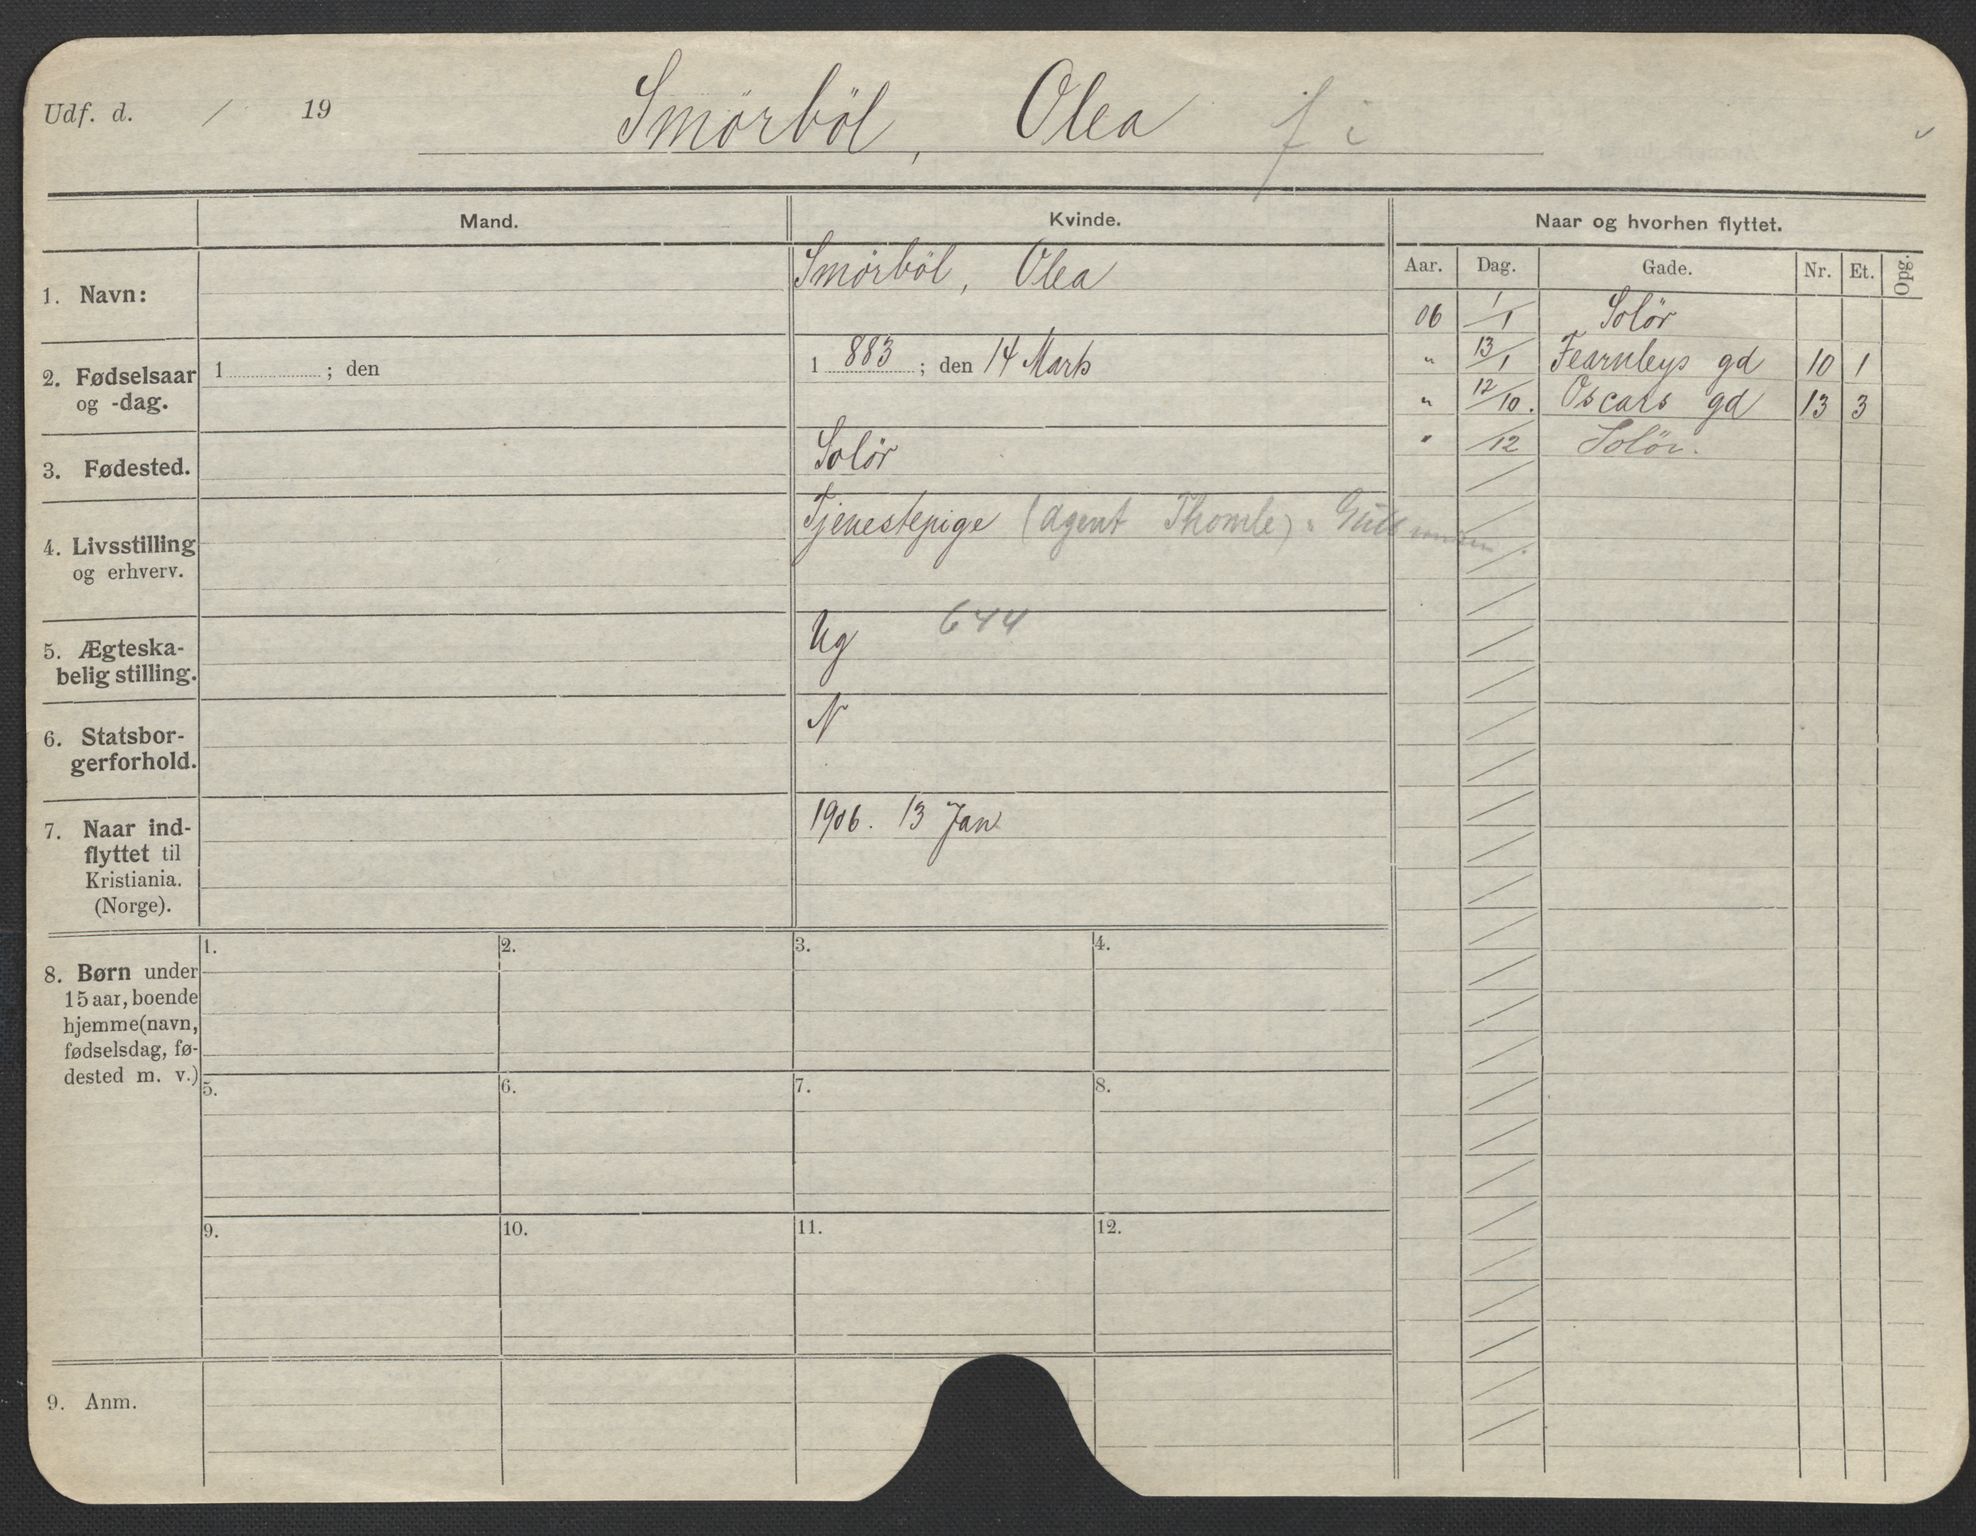 Udf. d. / 19
Smörböl, Olea f i
Mand.
Kvinde.
Naar og hvorhen flyttet.
Aar. Dag. Gade. Nr. Et. Opg.
1. Navn:
Smörböl, Olea
06 1/1 Solör
" 13/1 Fearnleys gd 10 1
" 12/10. Oscars gd 13 3
" /12 Solör.
2. Fødselsaar
og -dag.
1 ; den
1 883 ; den 14 Marts
3. Fødested.
Solör
4. Livsstilling
og erhverv.
Tjenestepige (Agent Thomle)
5. Ægteska-
belig stilling.
Ug 644
6. Statsbor-
gerforhold.
N
7. Naar ind-
flyttet til
Kristiania.
(Norge).
1906. 13 Jan
8. Børn under
15 aar, boende
hjemme (navn,
fødselsdag, fø-
dested m. v.)
1. 2. 3. 4.
5. 6. 7. 8.
9. 10. 11. 12.
9. Anm.